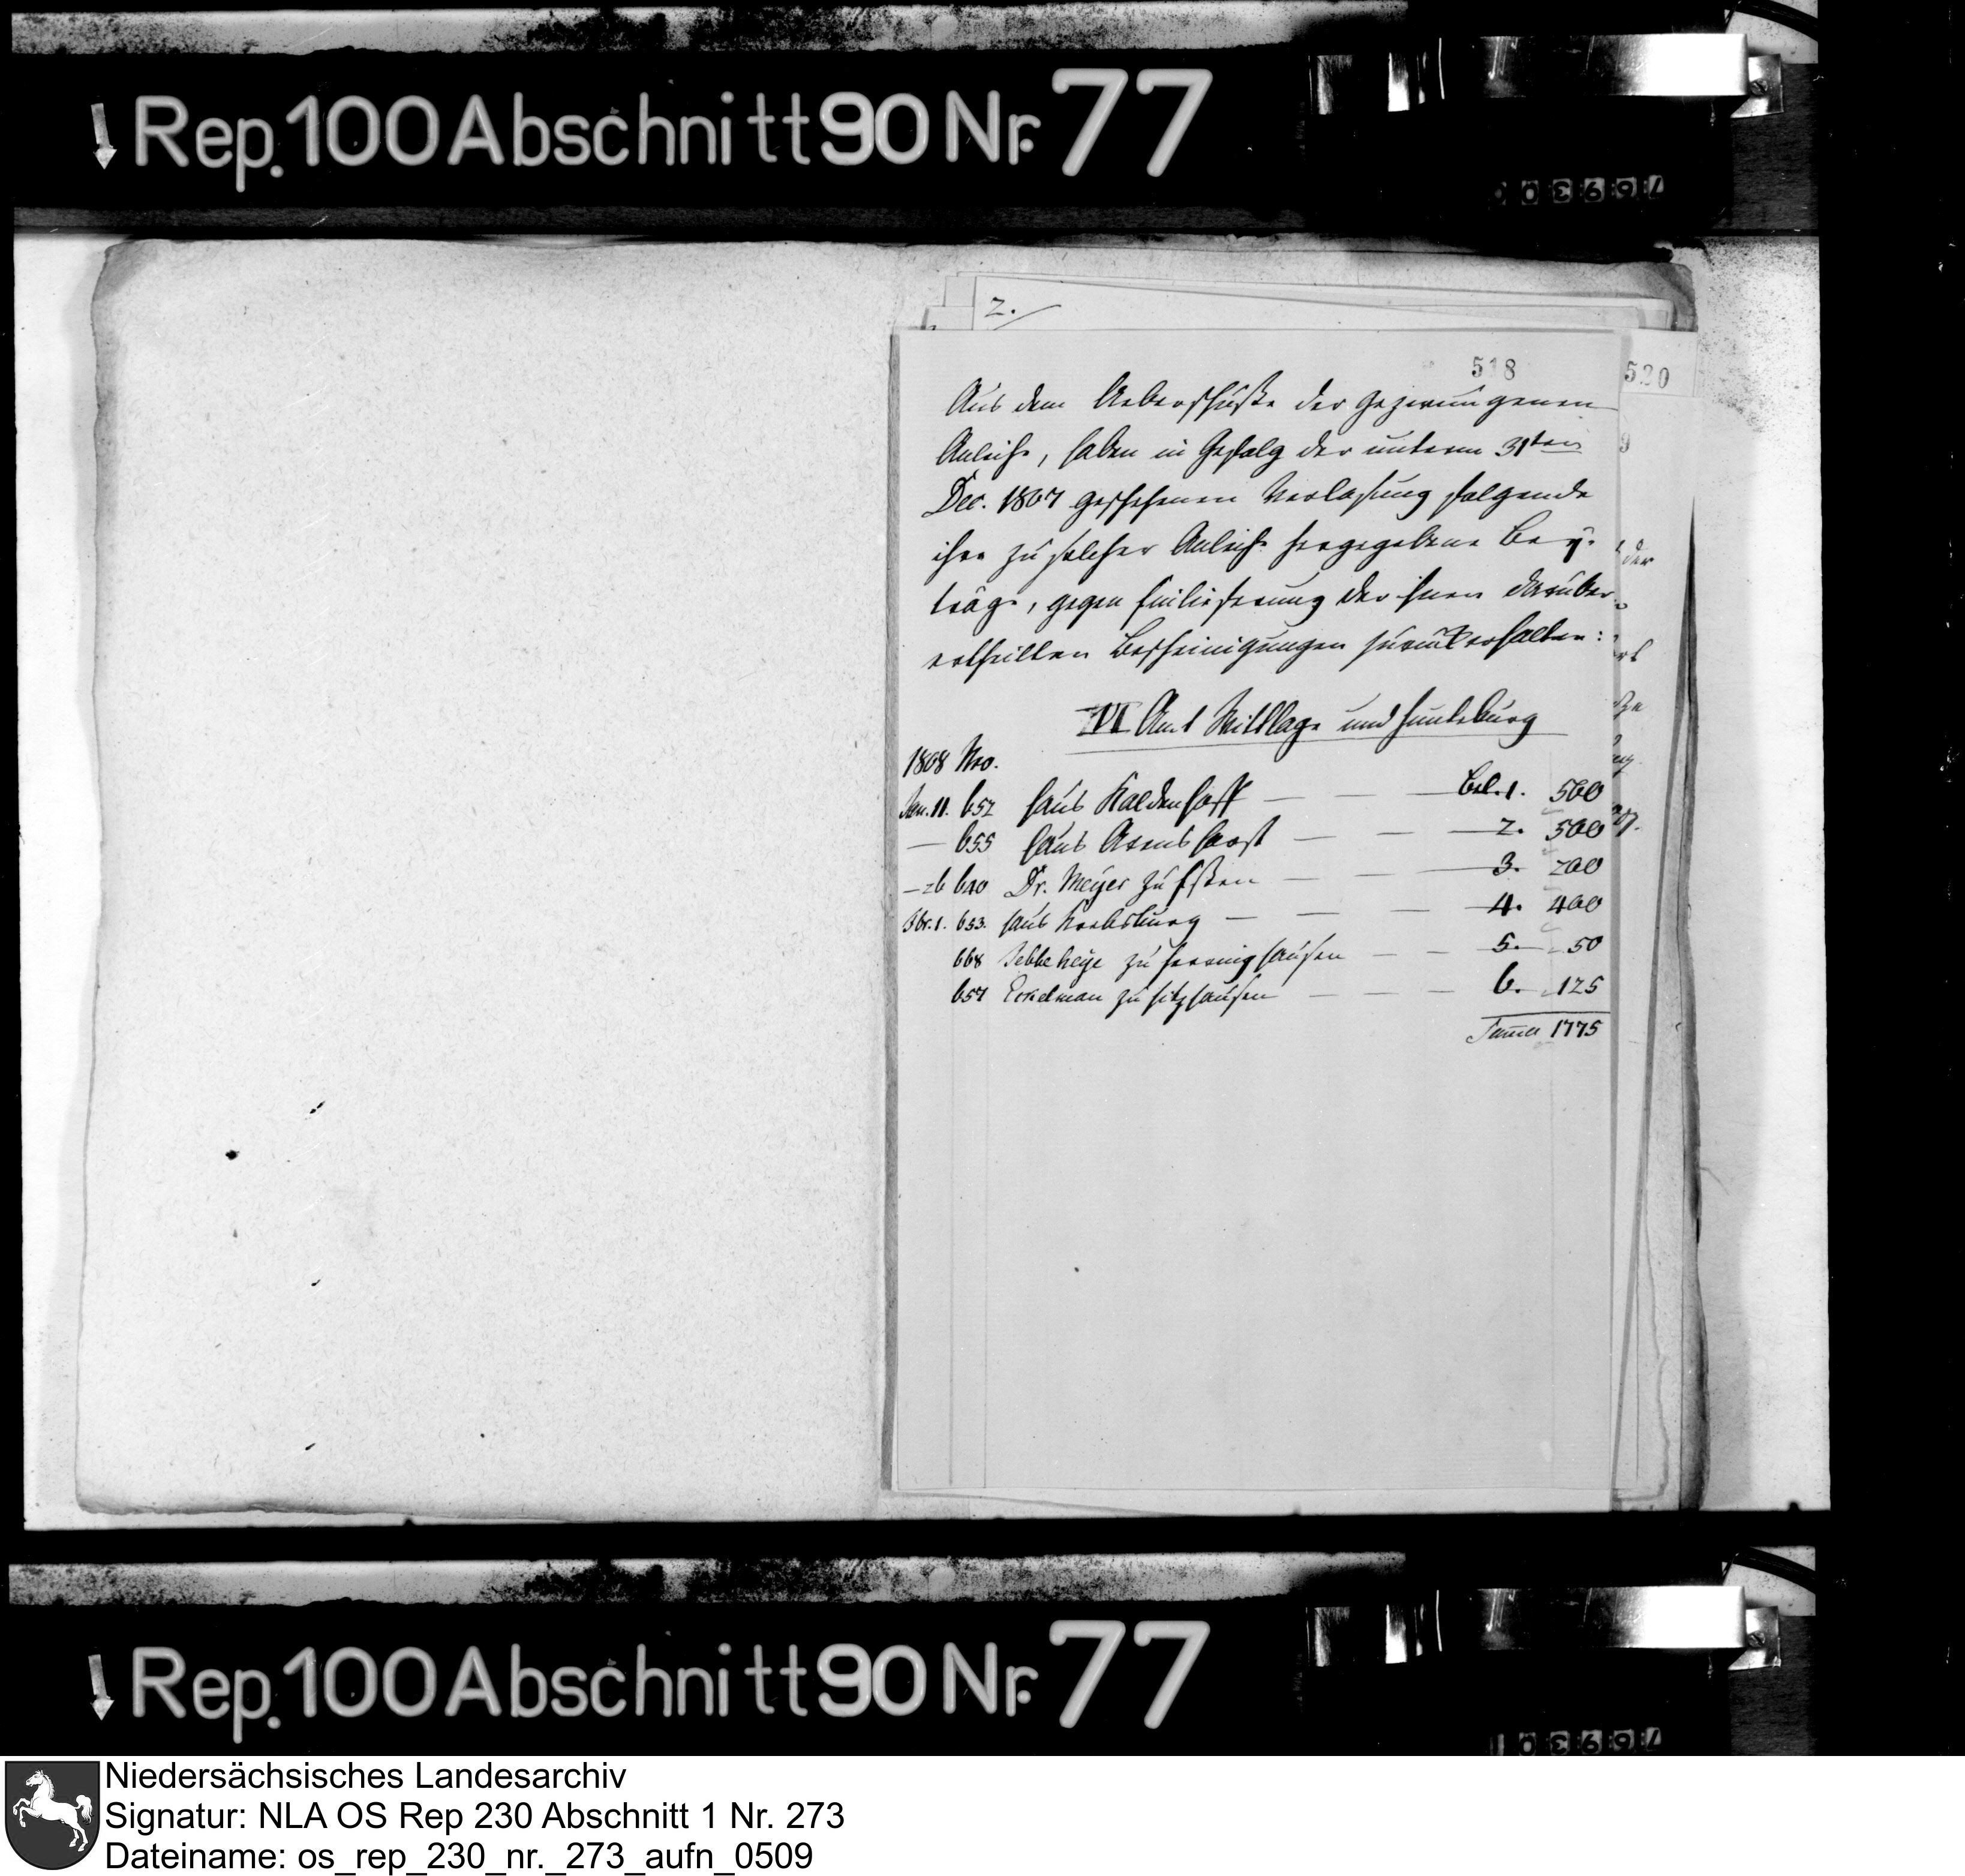 Rep. 100 Abschnitt 90 Nr. 77
2.
518
520
Aus dem Ueberschuße der gezwungenen
Anleihe, haben in Gefolg der unterm 31ten
Dec. 1807 geschehenen Verlosung folgende
ihre zu solcher Anleihe hergegebene Bey-
träge, gegen Einlieferung der ihnen darüber
ertheilten Bescheinigungen zurück erhalten:
VI Amt Wittlage und Hunteburg
1808 Nro.
Jan. 11. 652 Haus Kaldenhoff — — — Bel. 1. 500
— 655 Haus Arenshorst — — — 2. 500
— 26 640 Dr. Meyer zu Eßen — — — 3. 200
Fbr. 1. 653. Haus Krebsburg — — — 4. 400
668 zu Herringhausen — — 5. 50
657 Eckelman zu Hitzhausen — — — 6. 125
Summa 1775
Rep. 100 Abschnitt 90 Nr. 77
Niedersächsisches Landesarchiv
Signatur: NLA OS Rep 230 Abschnitt 1 Nr. 273
Dateiname: os_rep_230_nr._273_aufn_0509